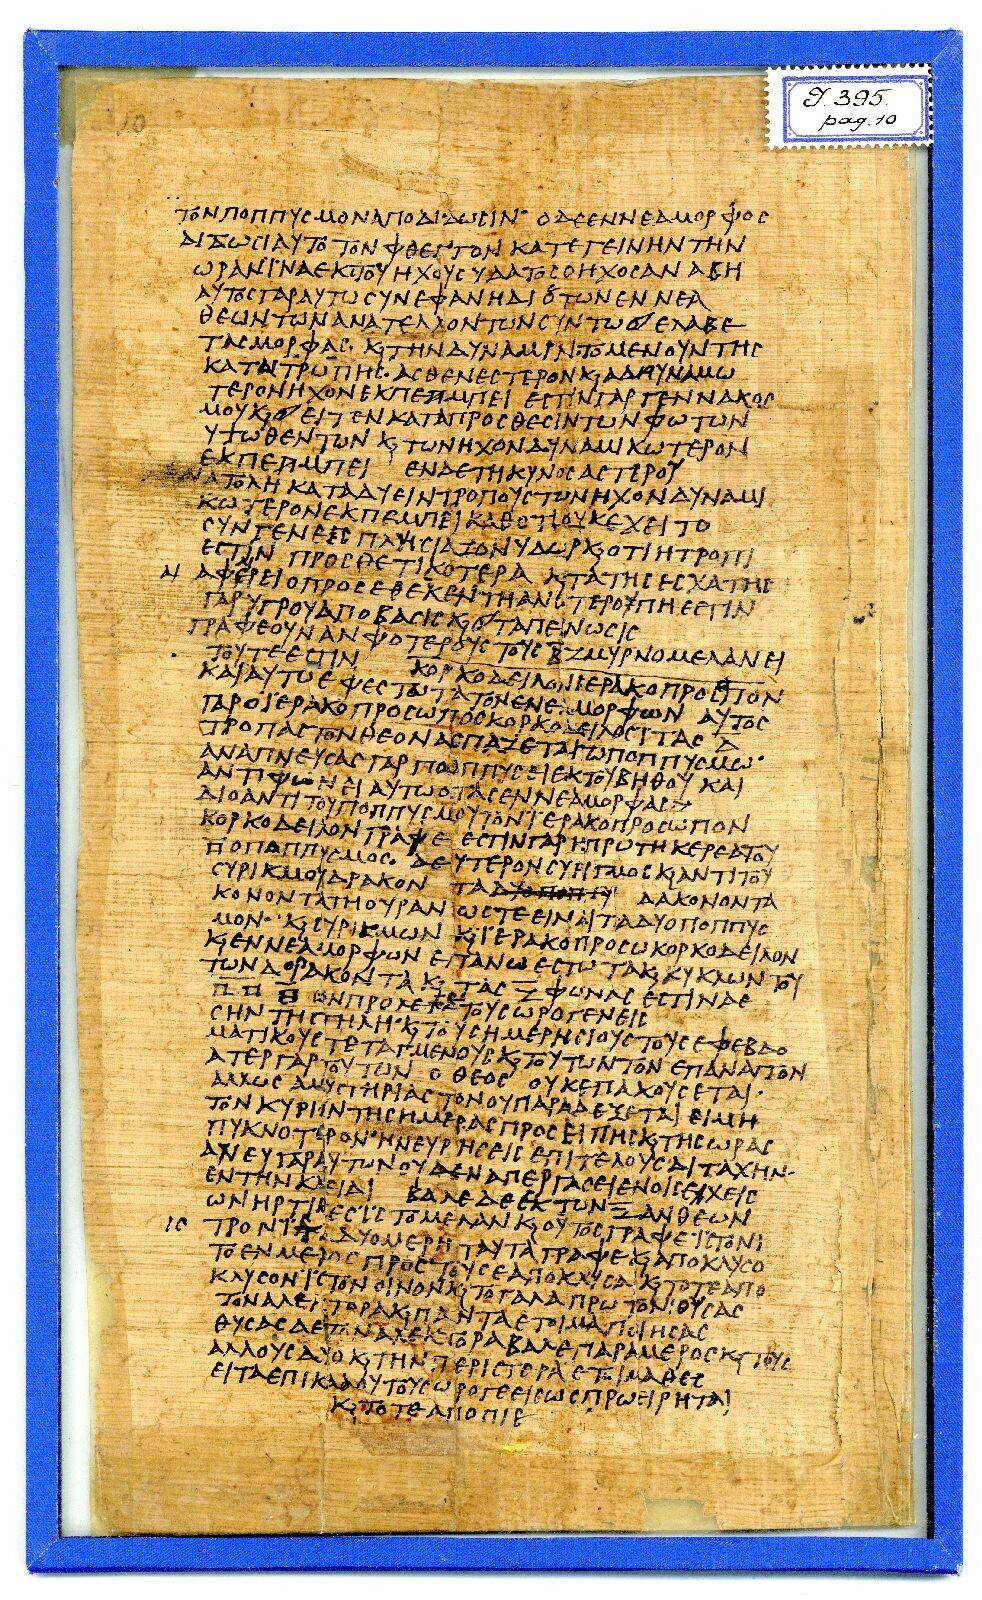 J. 395.
pag. 10
10
ΤΟΝΠΟΠΠΥΣΜΟΝΑΠΟΔΙΔΩΣΙΝ ΟΔΕΕΝΝΕΑΜΟΡΦΟΣ
ΔΙΔΩΣΙΑΥΤΟ ΤΟΝ ΦΘΕΓΓΟΝ ΚΑΤ ΕΓΕΙΝΗΝ ΤΗΝ
ΩΡΑΝΙΝΑΕΚΤΟΥΗΧΟΥΣΥΔΑΤΟΣΟΗΧΟΣΑΝΑΒΗ
ΑΥΤΟΣΓΑΡΑΥΤΩΣΥΝΕΦΑΝΗΔΙΟΤΩΝΕΝΝΕΑ
ΘΕΩΝΤΩΝΑΝΑΤΕΛΛΟΝΤΩΝΣΥΝΤΩ ΕΛΑΒΕ
ΤΑΣΜΟΡΦΑΣ Κ ΤΗΝΔΥΝΑΜΙΝ ΤΟΜΕΝΟΥΝΤΗΣ
ΚΑΤΑΤΡΩΠΗΣ ΑΣΘΕΝΕΣΤΕΡΟΝΚΑΔΑΥΝΑΜΩ
ΤΕΡΟΝΗΧΟΝΕΚΠΕΜΠΕΙ ΕΣΤΙΝΓΑΡΓΕΝΝΑΚΟΣ
ΜΟΥΚ ΕΣΤΕΝΚΑΤΑΠΡΟΣΘΕΣΙΝΤΩΝΦΩΤΩΝ
ΥΨΩΘΕΝΤΩΝ Κ ΤΩΝΗΧΟΝΔΥΝΑΜΙΚΩΤΕΡΟΝ
ΕΚΠΕΜΠΕΙ ΕΝΔΕΤΗΚΥΝΟΣΑΣΤΕΡΟΥ
ΑΝΑΤΟΛΗ ΚΑΤΑΔΥΕΙΝΤΡΟΠΟΥΣΤΩΝΗΧΟΝΔΥΝΑΜΙ
ΚΩΤΕΡΟΝΕΚΠΕΜΠΕΙΚΑΘΟΤΙΟΥΚΕΧΕΙΤΟ
ΣΥΝΓΕΝΕΣ ΠΛΗΣΙΑΖΟΝΥΔΩΡΚΟΤΙΗΤΡΟΠΙ
ΕΣΤΙΝ ΠΡΟΣΘΕΤΙΚΟΤΕΡΑ Κ ΤΑΤΗΣΕΣΧΑΤΗΣ
ΑΙ ΑΦΕΡΕΙΟΠΡΟΣΕΘΕΚΕΝΤΗΑΝΩΤΕΡΟΥΠΗΕΣΤΙΝ
ΓΑΡΥΓΡΟΥΑΠΟΒΑΣΙΣΚ ΤΑΠΕΙΝΩΣΙΣ
ΓΡΑΦΕΟΥΝΑΝΦΟΤΕΡΟΥΣΤΟΥΣΒΖΜΥΡΝΟΜΕΛΑΝΕΙ
ΤΟΥΤΕΕΣΤΙΝ ΚΟΡΚΟΔΕΙΛΟΝΙΕΡΑΚΟΠΡΟΣΠΟΝ
ΚΑΙΑΥΤΩΕΦΕΣΤΩΤΑΤΟΝΕΝΕΜΟΡΦΩΝ ΑΥΤΟΣ
ΓΑΡΟΙΕΡΑΚΟΠΡΟΣΩΠΟΣΚΟΡΚΟΔΕΙΛΟΣΙΤΑΣ Δ
ΤΡΟΠΑΣΤΟΝΘΕΟΝΑΣΠΑΖΕΤΑΙΩΠΟΠΠΥΣΜΩ
ΑΝΑΠΝΕΥΣΑΣΓΑΡΠΟΠΠΥΣΕΙΕΚΤΟΥΒΗΘΟΥΚΑΙ
ΑΝΤΙΦΩΝΕΙΑΥΤΩΟΤΑΣΕΝΝΕΑΜΟΡΦΑΣ
ΔΙΟΑΝΤΙΤΟΥΠΟΠΠΥΣΜΟΥΤΟΝΙΕΡΑΚΟΠΡΟΣΩΠΟΝ
ΚΟΡΚΟΔΕΙΛΟΝΓΡΑΦΕ ΕΣΤΙΝΓΑΡΗΠΡΩΤΗΚΕΡΕΑΤΟΥ
ΠΟΠΑΠΠΥΣΜΟΣ ΔΕΥΤΕΡΟΝΣΥΡΙΓΜΟΣΚΑΝΤΙΤΟΥ
ΣΥΡΙΚΜΟΥΔΡΑΚΟΝ ΤΑΔΥΟΠΟΠΠΥ ΔΑΚΟΝΟΝΤΑ
ΩΣΤΕΕΙΝΑΙΤΑΔΥΟΠΟΠΠΥΣ
ΜΟΝ Κ ΣΥΡΙΚΜΩΝ Κ ΙΕΡΑΚΟΠΡΟΣΩΚΟΡΚΟΔΕΙΛΟΝ
Κ ΕΝΝΕΑΜΟΡΦΩΝ ΕΠΑΝΩΕΣΤΩΤΑΚΚΥΚΛΩΝΤΟΥ
ΤΩΝΔΡΑΚΟΝΤΑΚ ΤΑΣ Ζ ΦΩΝΑΣΕΣΤΙΝΔΕ
Π Π Θ ΩΝΠΡΟΛΕΓΕΤΟΥΣΩΡΟΓΕΝΕΙΣ
ΣΗΝΤΗΣΤΗΛΗΚΤΟΥΣΗΜΕΡΗΣΙΟΥΣΤΟΥΣΕΦΕΒΔΟ
ΜΑΤΙΚΟΥΣΤΕΤΑΓΜΕΝΟΥΣΚΤΟΥΤΩΝΤΟΝΕΠΑΝΑΓΓΟΝ
ΑΤΕΡΓΑΡΤΟΥΤΩΝ Ο ΘΕΟΣ ΟΥΚΕΠΑΚΟΥΣΕΤΑΙ
ΑΛΛΩΣΑΜΥΣΤΗΡΙΑΣΤΟΝΟΥΠΑΡΑΔΕΞΕΤΑΙΕΙΜΗ
ΤΟΝΚΥΡΙΝΤΗΣΗΜΕΡΑΣΠΡΟΣΕΙΠΗΣΚΤΗΣΩΡΑΣ
ΠΥΚΝΟΤΕΡΟΝΗΝΕΥΡΗΣΕΙΣΕΠΙΤΕΛΟΥΣΔΙΤΑΧΗΝ
ΑΝΕΥΓΑΡΑΥΤΩΝΟΥΔΕΝΑΠΕΡΓΑΣΕΙΕΝΟΙΣΕΧΕΙΣ
ΕΝΤΗΝΚΛΕΙΔΙ ΒΑΛΕΔΕΕΚΤΩΝΖΑΝΘΕΩΝ
ΩΝΗΡΤΙΚΕΣΙΣΤΟΜΕΛΑΝΚΟΥΤΟΣΓΡΑΦΕΙΣΤΟΝΙ
ΙΣ ΤΡΟΝΙ ΔΥΟΜΕΡΗΤΑΥΤΑΓΡΑΦΕΚΑΠΟΚΛΥΣΟ
ΤΟΕΝΜΕΡΟΣΠΡΟΣΤΟΥΣΕΑΠΟΚΛΥΣΑΚΤΟΤΕΑΠΟ
ΚΛΥΣΟΝΙΣΤΟΝΟΙΝΟΝΚΤΟΓΑΛΑΠΡΩΤΟΝΘΥΣΑΣ
ΤΟΝΑΛΕΓΤΟΡΑΚΠΑΝΤΑΕΤΟΙΜΑΠΟΙΗΣΑΣ
ΘΥΣΑΣΔΕΤΟΝΑΛΕΚΤΟΡΑΒΑΛΕΠΑΡΑΜΕΡΟΣΚΤΟΥΣ
ΑΛΛΟΥΣΔΥΟΚΤΗΝΠΕΡΙΣΤΕΡΑΕΤΟΙΜΑΘΕΣ
ΕΙΤΑΕΠΙΚΑΛΟΥΤΟΥΣΩΡΟΓΕΕΙΣΩΣΠΡΩΕΙΡΗΤΑΙ
Κ ΤΟΤΕΑΠΟΠΙΕ